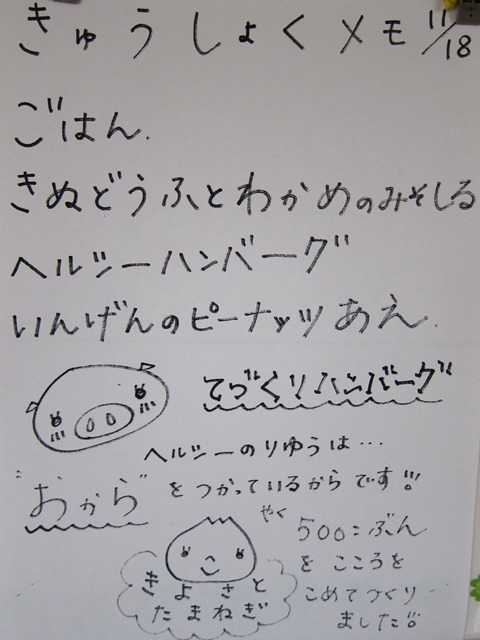 きゅうしょくメモ 11/18
ごはん.
きぬどうふとわかめのみそしる
ヘルシーハンバーグ
いんげんのピーナッツあえ.
てづくりハンバーグ
ヘルシーのりゆうは…
"おから"をつかっているからです!!
やく
500こぶん
をこころを
こめてつくり
ました!!
きよさと
たまねぎ